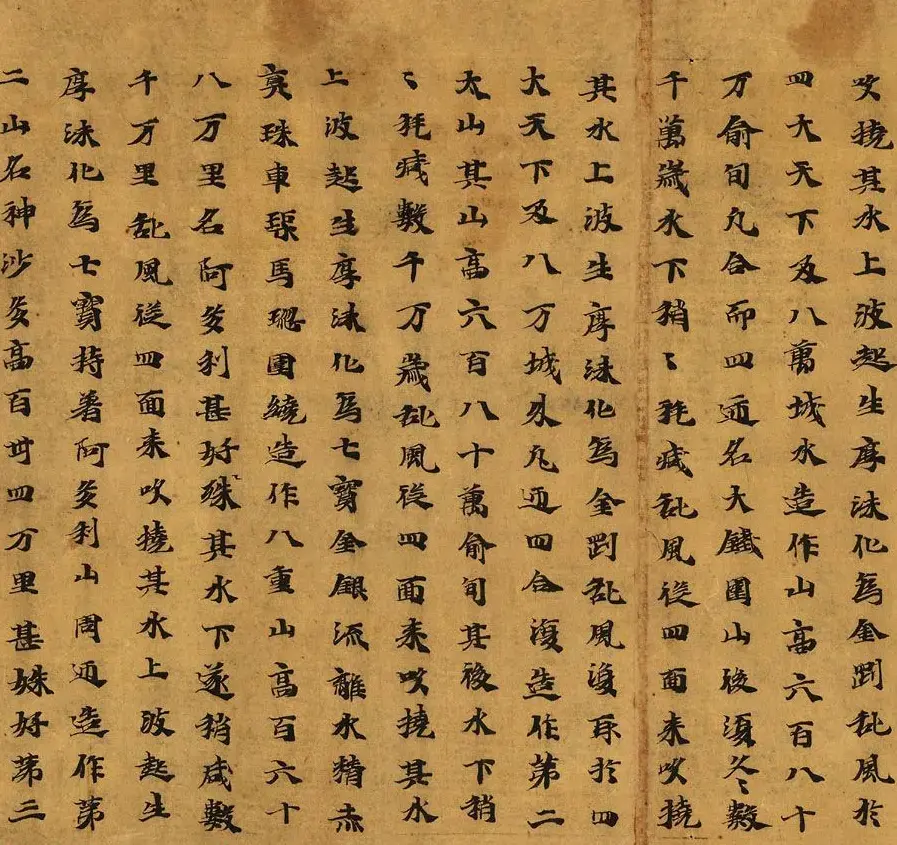 吹撓其水上波起生厚沫化為金剛乱風於
四大天下及八萬城水造作山高六百八十
万俞旬凡合而四迊名大鐵圍山後復久〻數
千萬歲水下稍〻耗减乱風從四面来吹撓
其水上波生厚沫化為金剛乱風復取於四
大天下及八万城外凡迊四合復造作第二
大山其山高六百八十萬俞旬其後水下稍
〻耗减數千万歲乱風從四面来吹撓其水
上波起生厚沫化為七寶金銀流離水精赤
真珠車璖馬瑙圍繞造作八重山高百六十
八万里名阿多利甚好殊其水下遂稍减數
千万里乱風從四面来吹撓其水上波起生
厚沫化為七寶持著阿多利山周迊造作第
二山名神沙多高百卌四万里甚姝好第三